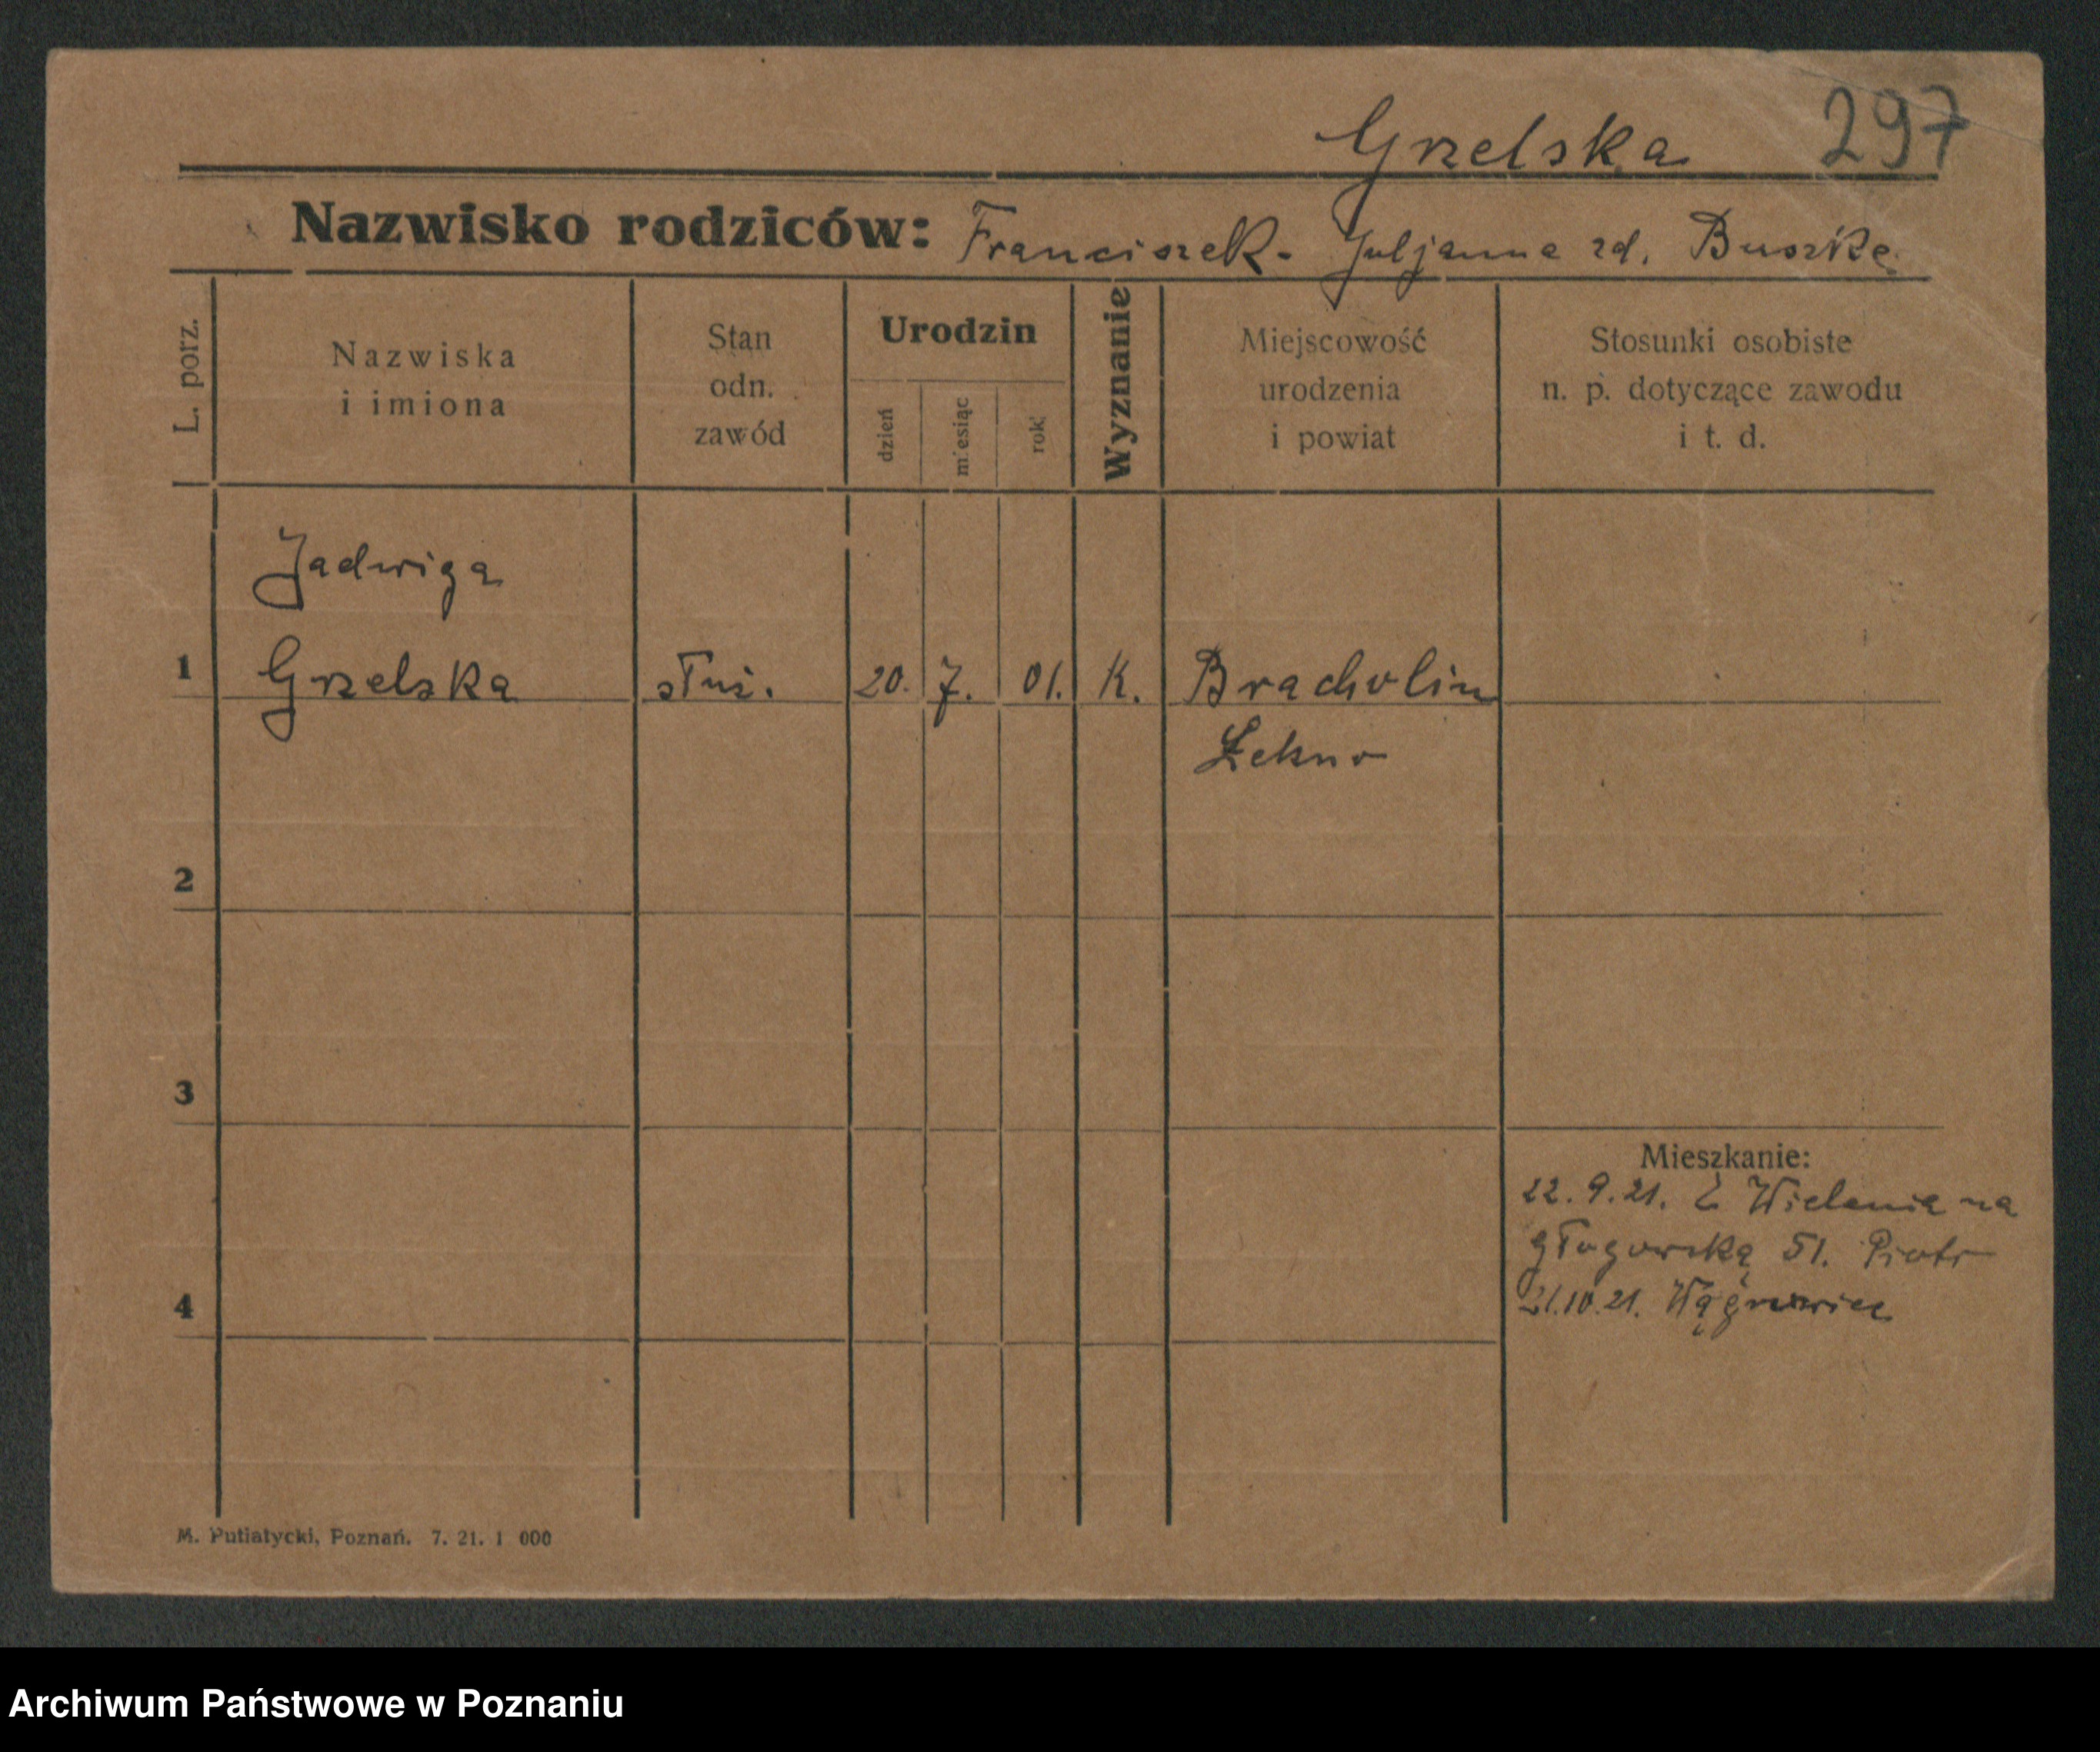 Grzelska 297
Nazwisko rodziców: Franciszek - Juljanna zd. Buszke
L. porz.
Nazwiska
i imiona
Stan
odn.
zawód
Urodzin
dzień
miesiąc
rok
Wyznanie
Miejscowość
urodzenia
i powiat
Stosunki osobiste
n. p. dotyczące zawodu
i t. d.
Jadwiga
1 Grzelska służ. 20. 7. 01. K. Bracholin
Łekno
2
3
4
Mieszkanie:
22. 9. 21. Z Wielenia na
głogowską 51. Piotr
21.10.21. Wągrowiec
M. Putiatycki, Poznań. 7. 21. 1 000
Archiwum Państwowe w Poznaniu